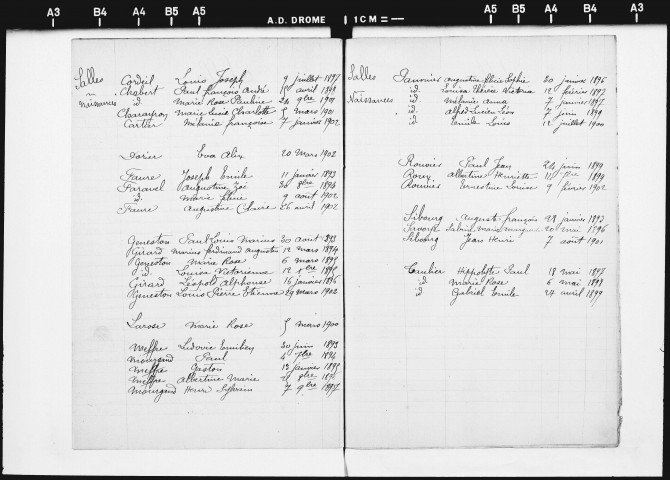 A3 B4 A4 B5 A5 A.D. DROME 1CM= A5 B5 A4 B4 A3
Salles Cordeil Louis Joseph 9 juillet 1897
Chabert Paul françois André 15 avril 1899
Naissances id. Marie Rose Pauline 24 9bre 1901
Charayron Marie Lucie Charlotte 5 mars 1901
Cartier Mélanie françoise 7 janvier 1902
Dorier Eva Alix 20 Mars 1902
Faure Joseph Emile 11 janvier 1893
Faravel Augustine Zoé 30 8bre 1896
id. Marie 9 août 1902
Faure Augustine Claire 26 avril 1902
Geneston Paul Louis Marius 30 août 1893
Girard Marius ferdinand augustin 12 mars 1894
Geneston Marie Rose 6 mars 1895
id Louise Victorienne 12
Girard Léopold Alphonse 16 janvier 1896
Geneston Louis Pierre Etienne 29 mars 1902
Larose Marie Rose 5 mars 1900
Meffre Ludovic 30 juin 1893
Mourgand Paul 4 7bre 1894
Meffre Gaston 13 janvier 1895
Meffre Albertine Marie 8bre
Mourgand Henri Sylvain 7 9bre 1897
Salles augustine Sophie 20 janvier 1896
id Louise Victoria 12 février 1897
Naissances id. Mélanie Anna 7 janvier 1897
id. Léon 7 juin 1899
id Emile Louis 12 juillet 1900
Rouvier Paul Jean 24 juin 1899
Rorey Albertine Henriette 11 1894
Rouvier Ernestine Louise 9 février 1902
Sibourg Auguste françois 28 janvier 1893
marie 20 mai 1896
Sibourg Jean Henri 7 août 1901
Hippolyte Paul 18 mai 1897
id. Marie Rose 6 mai 1898
id Gabriel Emile 24 avril 1899